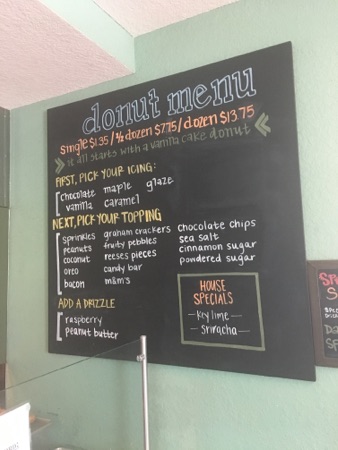 donut menu
single $1.35 / ½ dozen $7.75 / dozen $13.75
it all starts with a vanilla cake donut
FIRST, PICK YOUR ICING:
chocolate maple glaze
vanilla caramel
NEXT, PICK YOUR TOPPING
sprinkles graham crackers chocolate chips
peanuts fruity pebbles sea salt
coconut reeses pieces cinnamon sugar
oreo candy bar powdered sugar
bacon m&m's
HOUSE
SPECIALS
key lime
sriracha
ADD A DRIZZLE
raspberry
peanut butter